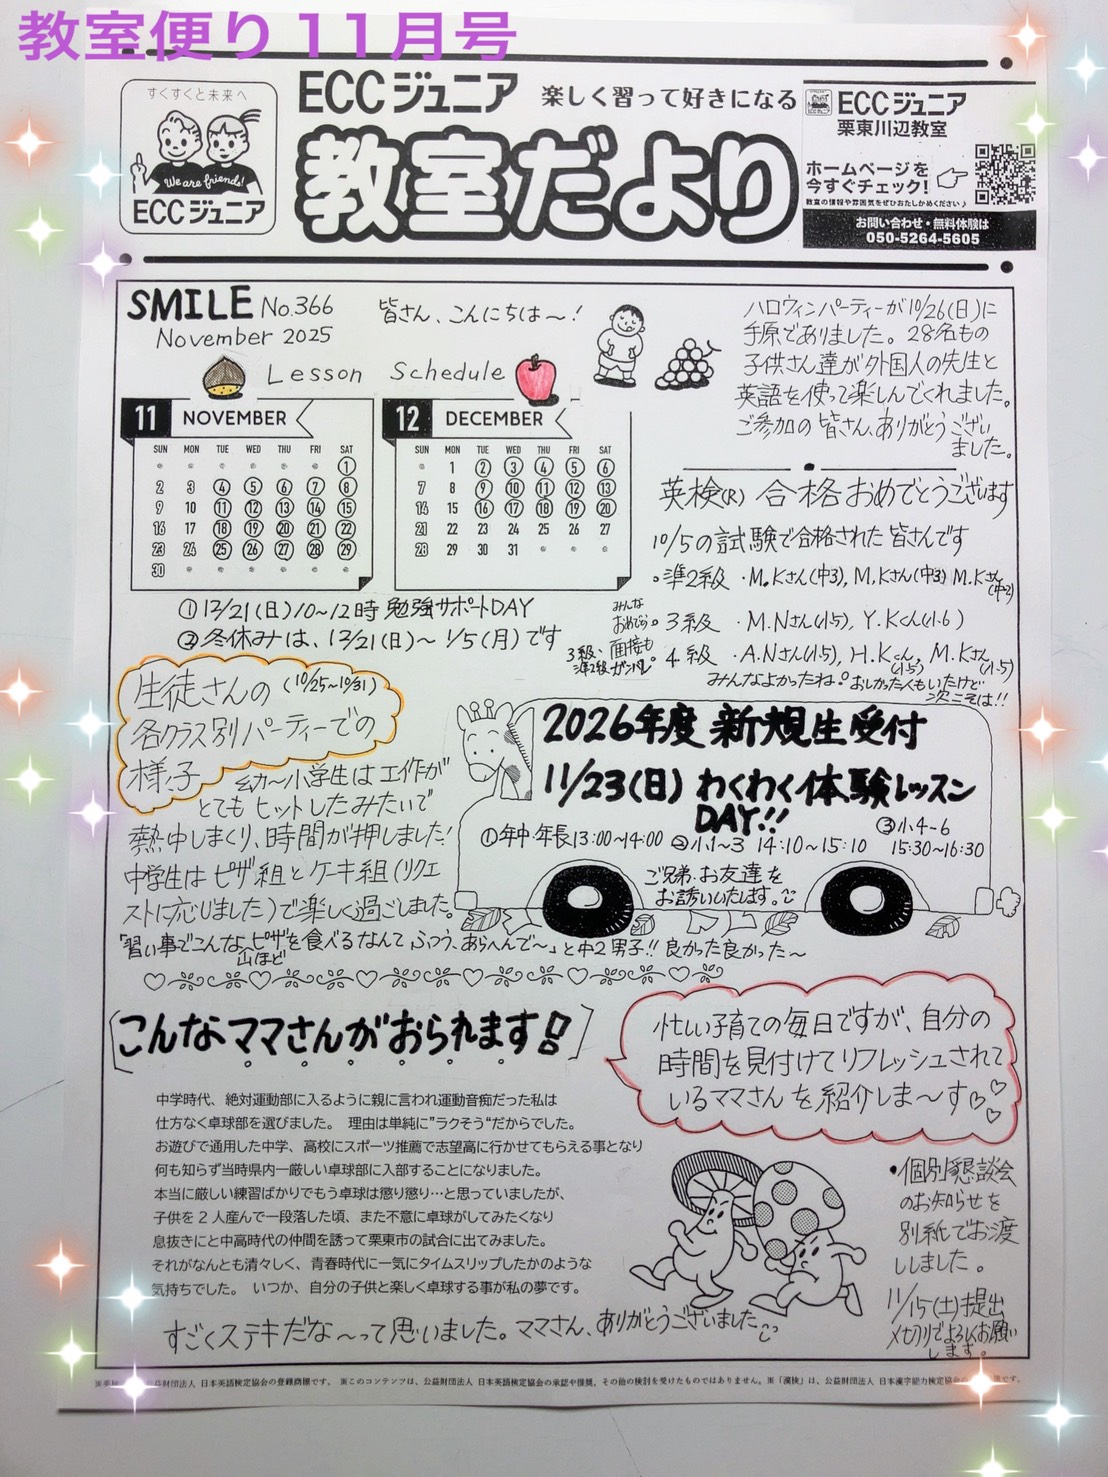 教室便り11月号
すくすくと未来へ
We are friends!
ECCジュニア
ECCジュニア 楽しく習って好きになる
教室だより
ECCジュニア
栗東川辺教室
ホームページを
今すぐチェック!
教室の情報や雰囲気をぜひおたしかめください♪
お問い合わせ・無料体験は
050-5264-5605
SMILE No.366
November 2025
皆さん、こんにちは〜!
Lesson Schedule
11 NOVEMBER
SUN MON TUE WED THU FRI SAT
1
2 3 4 5 6 7 8
9 10 11 12 13 14 15
16 17 18 19 20 21 22
23 24 25 26 27 28 29
30
12 DECEMBER
SUN MON TUE WED THU FRI SAT
1 2 3 4 5 6
7 8 9 10 11 12 13
14 15 16 17 18 19 20
21 22 23 24 25 26 27
28 29 30 31
①12/21(日)10〜12時 勉強サポートDAY
②冬休みは、12/21(日)〜 1/5(月)です
ハロウィンパーティーが10/26(日)に
手原でありました。28名もの
子供さん達が外国人の先生と
英語を使って楽しんでくれました。
ご参加の皆さん、ありがとうござい
ました。
英検(R) 合格おめでとうございます
10/5の試験で合格された皆さんです
。準2級 ・M.Kさん(中3), M.Kさん(中3) M.Kさん(中2)
みんな
おめでとう。
3級 ・M.Nさん(小5), Y.Kくん(小6)
3級、準2級 面接も ガンバレ。
4級 ・A.Nさん(小5), H.Kくん(小5), M.Kさん(小5)
みんなよかったね。おしかった人もいたけど
次こそは!!
生徒さんの(10/25〜10/31)
各クラス別パーティーでの
様子
幼〜小学生は工作が
とてもヒットしたみたいで
熱中しまくり、時間が押しました!
中学生はピザ組とケーキ組(リクエ
ストに応じました)で楽しく過ごしました。
「習い事でこんな山ほどピザを食べるなんてふつう、あらへんで〜」と中2男子!! 良かった良かった〜
2026年度 新規生受付
11/23(日) わくわく体験レッスン
DAY!!
①年中・年長13:00〜14:00 ②小1〜3 14:10〜15:10 ③小4〜6 15:30〜16:30
ご兄弟、お友達を
お誘いいたします。
こんなママさんがおられます!
忙しい子育ての毎日ですが、自分の
時間を見付けてリフレッシュされて
いるママさんを紹介しま〜す
中学時代、絶対運動部に入るように親に言われ運動音痴だった私は
仕方なく卓球部を選びました。 理由は単純に"ラクそう"だからでした。
お遊びで通用した中学、高校にスポーツ推薦で志望高に行かせてもらえる事となり
何も知らず当時県内一厳しい卓球部に入部することになりました。
本当に厳しい練習ばかりでもう卓球は懲り懲り…と思っていましたが、
子供を2人産んで一段落した頃、また不意に卓球がしてみたくなり
息抜きにと中高時代の仲間を誘って栗東市の試合に出てみました。
それがなんとも清々しく、青春時代に一気にタイムスリップしたかのような
気持ちでした。 いつか、自分の子供と楽しく卓球する事が私の夢です。
すごくステキだな〜って思いました。ママさん、ありがとうございました
・個別懇談会
のお知らせを
別紙でお渡
ししました。
11/15(土)提出
〆切りでよろしくお願い
します。
公益財団法人 日本英語検定協会の登録商標です。 ※このコンテンツは、公益財団法人 日本英語検定協会の承認や推奨、その他の検討を受けたものではありません。※「漢検」は、公益財団法人 日本漢字能力検定協会の